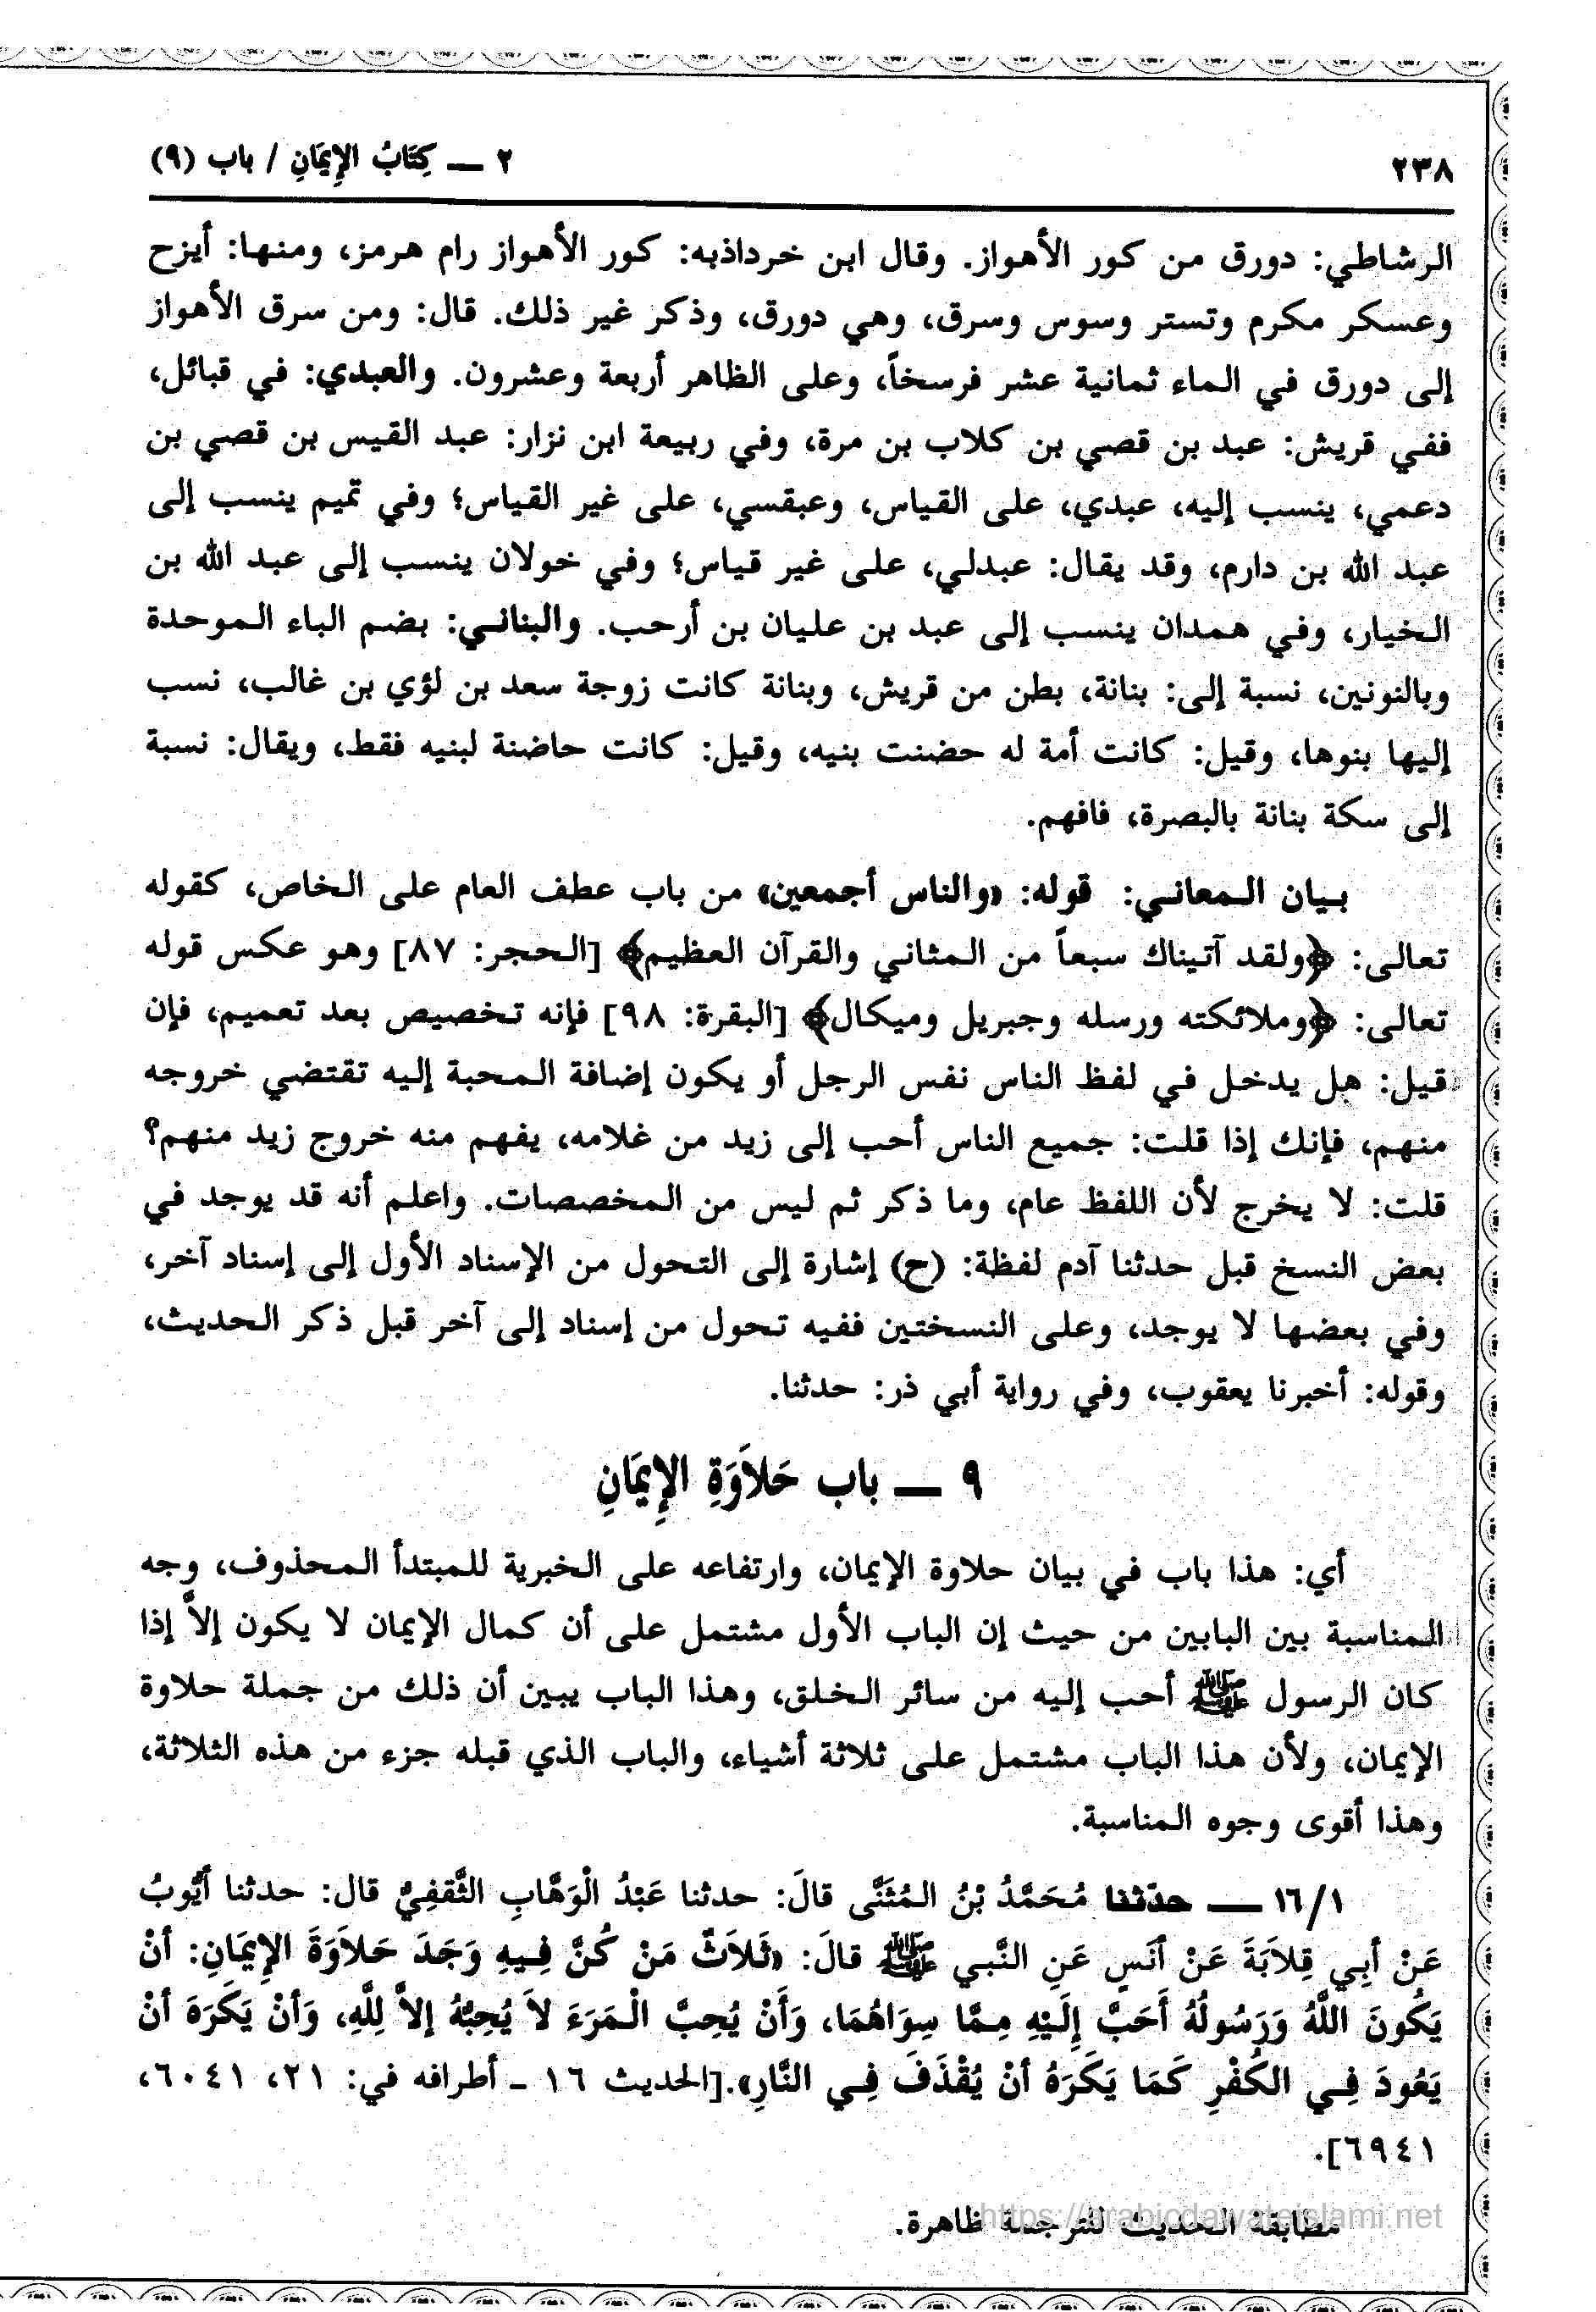 ٢٣٨
٢ ـــ كِتَابُ الإِيمَانِ / باب (٩)
الرشاطي: دورق من كور الأهواز. وقال ابن خرداذبه: كور الأهواز رام هرمز، ومنها: أيزح
وعسكر مكرم وتستر وسوس وسرق، وهي دورق، وذكر غير ذلك. قال: ومن سرق الأهواز
إلى دورق في الماء ثمانية عشر فرسخاً، وعلى الظاهر أربعة وعشرون. والعبدي: في قبائل،
ففي قريش: عبد بن قصي بن كلاب بن مرة، وفي ربيعة ابن نزار: عبد القيس بن قصي بن
دعمي، ينسب إليه، عبدي، على القياس، وعبقسي، على غير القياس؛ وفي تميم ينسب إلى
عبد الله بن دارم، وقد يقال: عبدلي، على غير قياس؛ وفي خولان ينسب إلى عبد الله بن
الخيار، وفي همدان ينسب إلى عبد بن عليان بن أرحب. والبناني: بضم الباء الموحدة
وبالنونين، نسبة إلى: بنانة، بطن من قريش، وبنانة كانت زوجة سعد بن لؤي بن غالب، نسب
إليها بنوها، وقيل: كانت أمة له حضنت بنيه، وقيل: كانت حاضنة لبنيه فقط، ويقال: نسبة
إلى سكة بنانة بالبصرة، فافهم.
بيان المعاني: قوله: «والناس أجمعين» من باب عطف العام على الخاص، كقوله
تعالى: ﴿ولقد آتيناك سبعاً من المثاني والقرآن العظيم﴾ [الحجر: ٨٧] وهو عكس قوله
تعالى: ﴿وملائكته ورسله وجبريل وميكال﴾ [البقرة: ٩٨] فإنه تخصيص بعد تعميم، فإن
قيل: هل يدخل في لفظ الناس نفس الرجل أو يكون إضافة المحبة إليه تقتضي خروجه
منهم، فإنك إذا قلت: جميع الناس أحب إلى زيد من غلامه، يفهم منه خروج زيد منهم؟
قلت: لا يخرج لأن اللفظ عام، وما ذكر ثم ليس من المخصصات. واعلم أنه قد يوجد في
بعض النسخ قبل حدثنا آدم لفظة: (ح) إشارة إلى التحول من الإسناد الأول إلى إسناد آخر،
وفي بعضها لا يوجد، وعلى النسختين ففيه تحول من إسناد إلى آخر قبل ذكر الحديث،
وقوله: أخبرنا يعقوب، وفي رواية أبي ذر: حدثنا.
٩ ـــ باب حَلاَوَةِ الإِيمَانِ
أي: هذا باب في بيان حلاوة الإيمان، وارتفاعه على الخبرية للمبتدأ المحذوف، وجه
المناسبة بين البابين من حيث إن الباب الأول مشتمل على أن كمال الإيمان لا يكون إلاَّ إذا
كان الرسول ﷺ أحب إليه من سائر الخلق، وهذا الباب يبين أن ذلك من جملة حلاوة
الإيمان، ولأن هذا الباب مشتمل على ثلاثة أشياء، والباب الذي قبله جزء من هذه الثلاثة،
وهذا أقوى وجوه المناسبة.
١/ ١٦ ـــ حدّثنا مُحَمَّدُ بْنُ المُثَنَّى قالَ: حدثنا عَبْدُ الْوَهَّابِ الثَّقفِيُّ قال: حدثنا أيُّوبُ
عَنْ أبِي قِلاَبَةَ عَنْ أنَسٍ عَنِ النَّبي ﷺ قالَ: «ثَلاَثٌ مَنْ كُنَّ فِيهِ وَجَدَ حَلاَوَةَ الإِيمَانِ: أنْ
يَكُونَ اللَّهُ وَرَسُولُهُ أَحَبَّ إِلَيْهِ مِمَّا سِوَاهُمَا، وَأَنْ يُحِبَّ الْمَرَءَ لاَ يُحِبُّهُ إلاَّ لِلَّهِ، وَأنْ يَكَرَهَ أنْ
يَعُودَ فِي الكُفْرِ كَمَا يَكَرَهُ أنْ يُقْذَفَ فِي النَّارِ».[الحديث ١٦ ـ أطرافه في: ٢١، ٦٠٤١،
٦٩٤١].
مطابقة الحديث للترجمة ظاهرة.
https://arabicdawateislami.net